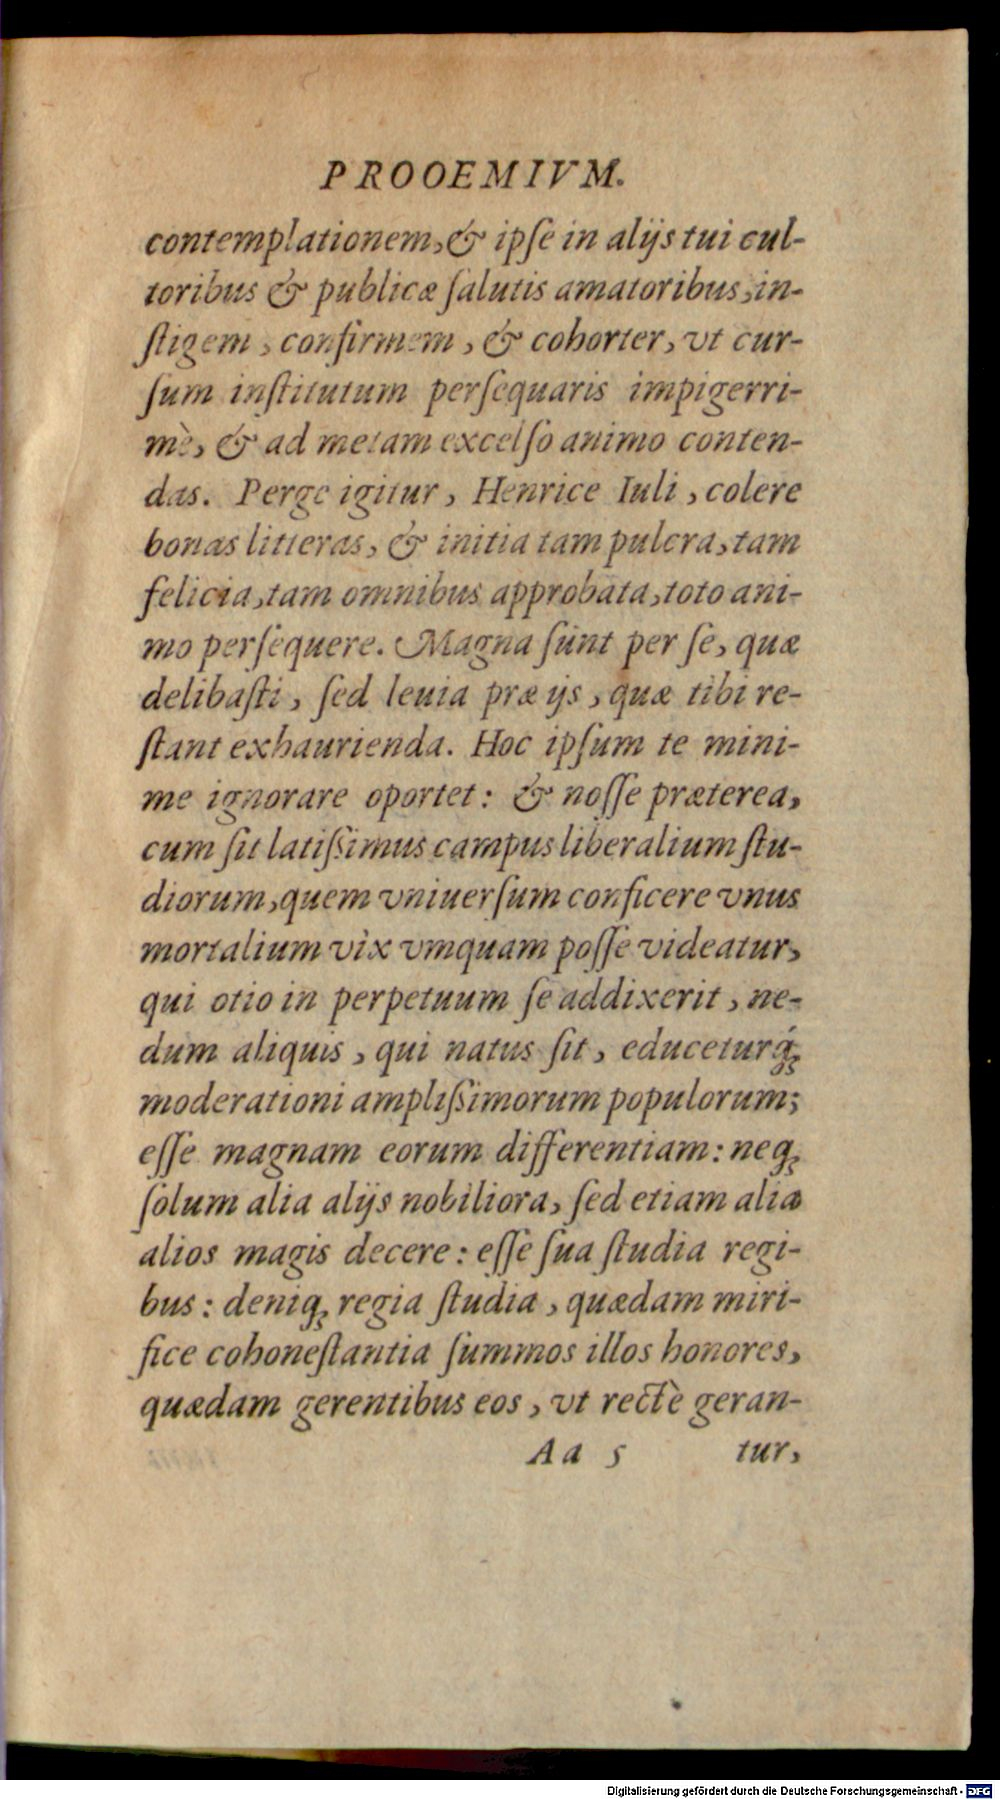 PROOEMIVM.
contemplationem, & ipſe in alijs tui cul-
toribus & publicæ ſalutis amatoribus, in-
ſtigem, confirmem, & cohorter, vt cur-
ſum inſtitutum perſequaris impigerri-
mè, & ad metam excelſo animo conten-
das. Perge igitur, Henrice Iuli, colere
bonas litteras, & initia tam pulcra, tam
felicia, tam omnibus approbata, toto ani-
mo perſequere. Magna ſunt per ſe, quæ
delibaſti, ſed leuia præ ijs, quæ tibi re-
ſtant exhaurienda. Hoc ipſum te mini-
me ignorare oportet: & noſſe præterea,
cum ſit latiſsimus campus liberalium ſtu-
diorum, quem vniuerſum conficere vnus
mortalium vix vmquam poſſe videatur,
qui otio in perpetuum ſe addixerit, ne-
dum aliquis, qui natus ſit, educeturq́;
moderationi ampliſsimorum populorum;
eſſe magnam eorum differentiam: neq;
ſolum alia alijs nobiliora, ſed etiam alia
alios magis decere: eſſe ſua ſtudia regi-
bus: deniq; regia ſtudia, quædam miri-
fice cohoneſtantia ſummos illos honores,
quædam gerentibus eos, vt rectè geran-
Aa 5 tur,
Digitalisierung gefördert durch die Deutsche Forschungsgemeinschaft - DFG